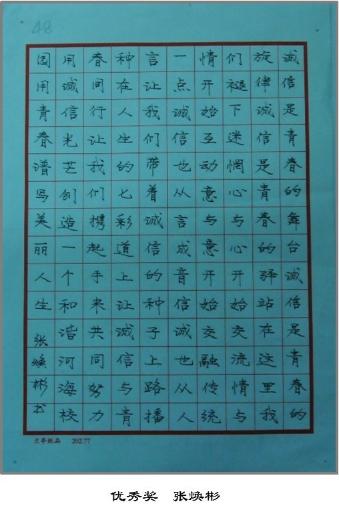 48
诚信是青春的舞台诚信是青春的
旋律诚信是青春的驿站在这里我
们褪下迷惘心与心开始交流情与
情开始互动意与意开始交融传统
一点诚信也从言成音信诚也从人
言让我们带着诚信的种子上路播
种在人生的七彩道上让诚信与青
春同行让我们携起手来共同努力
用诚信光芒创造一个和谐河海校
园用青春谱写美丽人生 张焕彬书
202.77
优秀奖 张焕彬